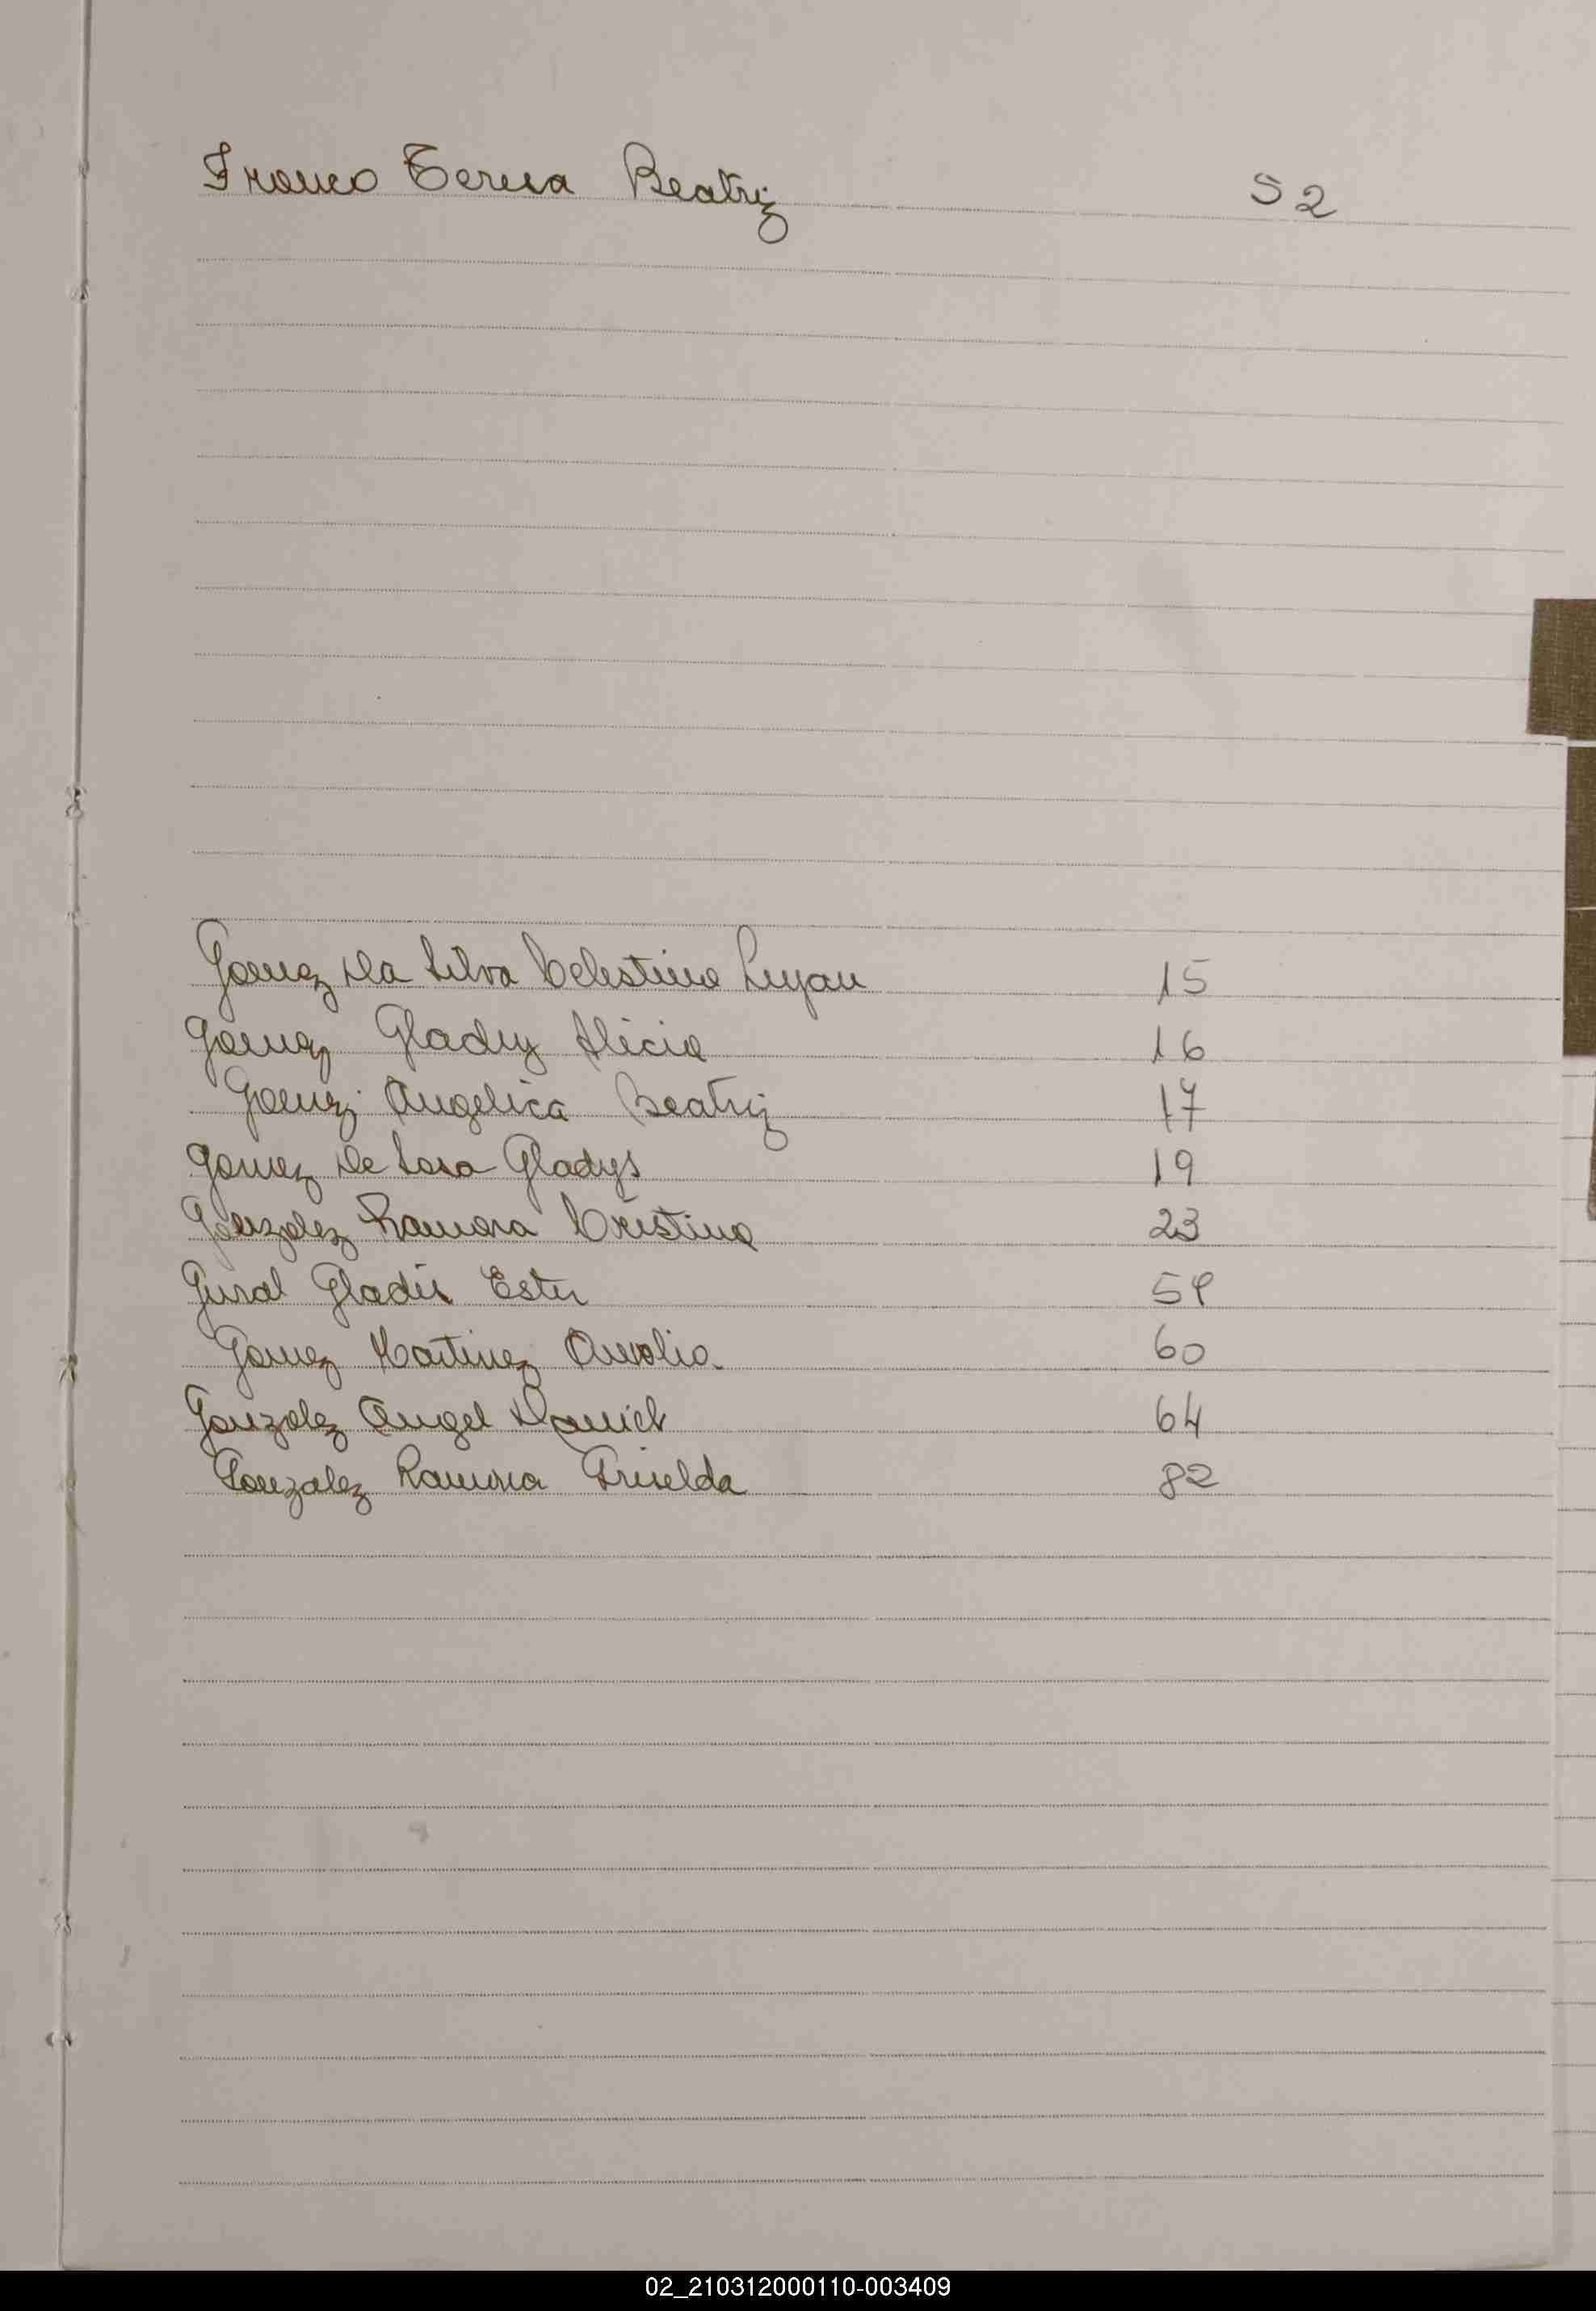 Franco Teresa Beatriz 52
Gomez Da Silva Celestino Lujan 15
Gomez Gladys Alicia 16
Gomez Angelica Beatriz 17
Gomez De Sosa Gladys 19
Gonzalez Ramona Cristina 23
Gural Gladis Ester 59
Gomez Martinez 60
Gonzalez Angel Daniel 64
Gonzalez Ramona Griselda 82
02_210312000110-003409